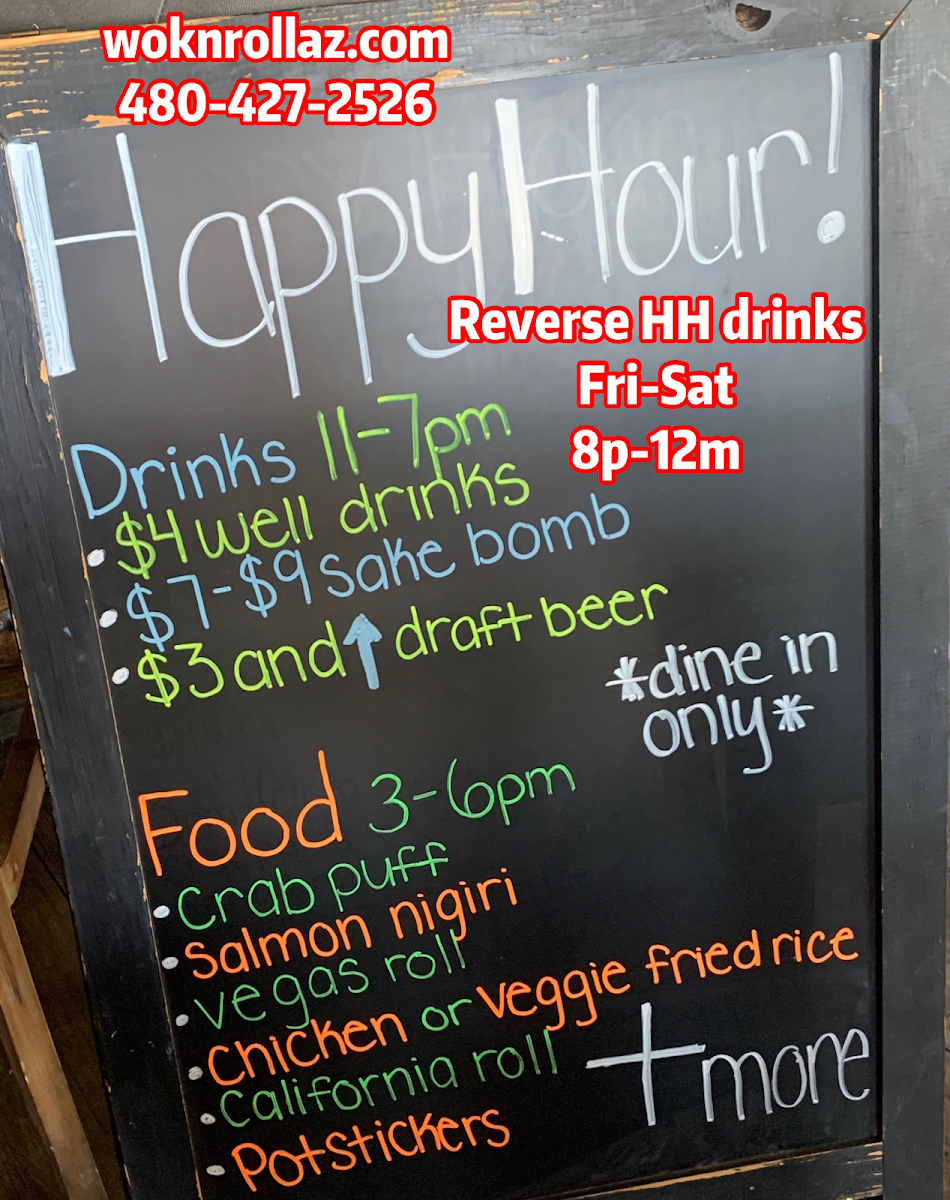 woknrollaz.com
480-427-2526
Happy Hour!
Reverse HH drinks
Fri-Sat
8p-12m
Drinks 11-7pm
• $4 well drinks
• $7-$9 sake bomb
• $3 and ↑ draft beer
*dine in
only*
Food 3-6pm
• crab puff
• salmon nigiri
• vegas roll
• chicken or veggie fried rice
• california roll
+ more
• Potstickers